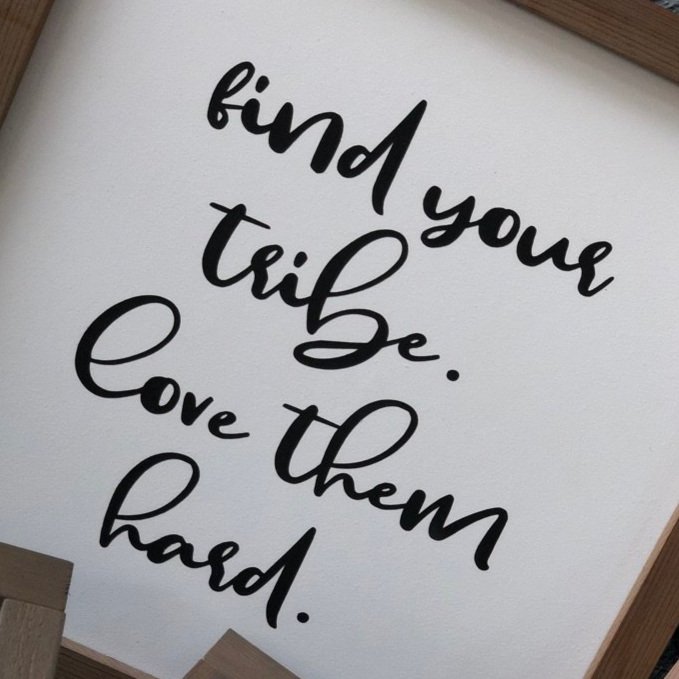 find your
tribe.
love them
hard.